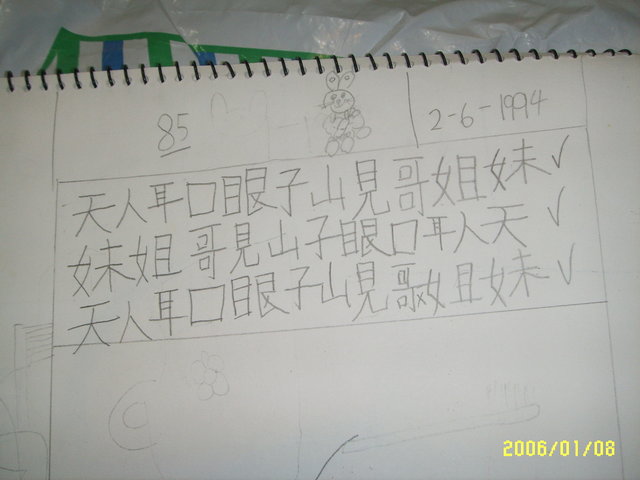 85
2-6-1994
天人耳口眼子山見哥姐妹✓
妹姐哥見山子眼口耳人天✓
天人耳口眼子山見哥姐妹✓
2006/01/08